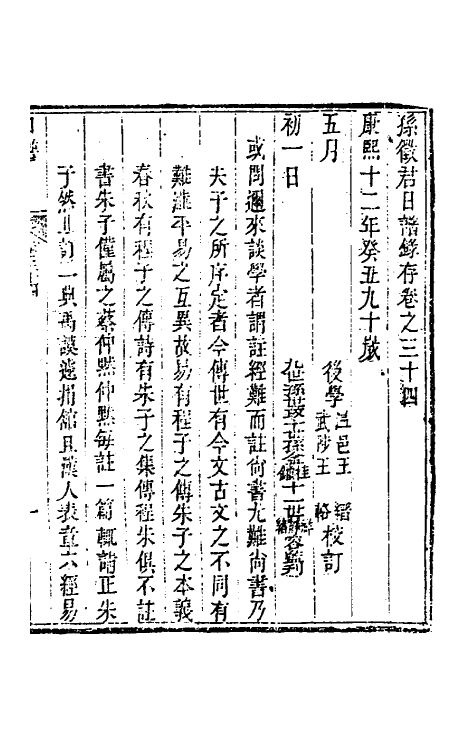 孫徵君日譜錄存卷之三十四
康熙十二年癸丑九十歲
五月
後學 邑王 校訂
武陟王輅
初一日
或問邇來談學者謂註經難而註尚書尤難尚書乃
夫子之所序定者今傳世有今文古文之不同有
難澁平易之互異故易有程子之傳朱子之本義
春秋有程子之傳詩有朱子之集傳程朱俱不註
書朱子僅屬之蔡仲黙仲黙每註一篇輒請正朱
子然止訂二典禹謨遽捐館且漢人表章六經易
一